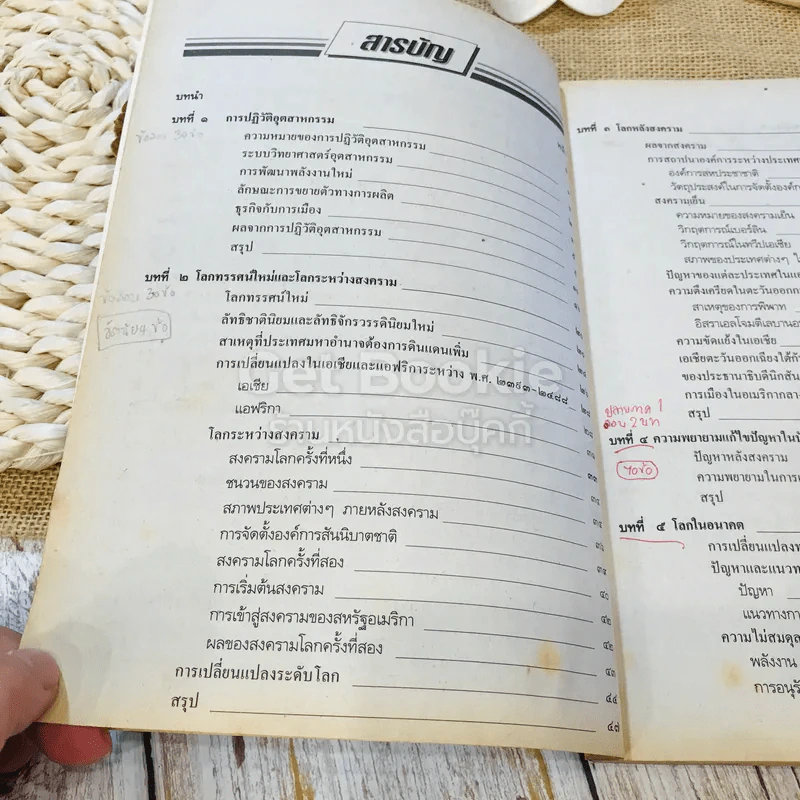 สารบัญ
บทนำ
บทที่ ๑ การปฏิวัติอุตสาหกรรม
ข้อสอบ 30ข้อ
ความหมายของการปฏิวัติอุตสาหกรรม
ระบบวิทยาศาสตร์อุตสาหกรรม
การพัฒนาพลังงานใหม่
ลักษณะการขยายตัวทางการผลิต
ธุรกิจกับการเมือง
ผลจากการปฏิวัติอุตสาหกรรม
สรุป
บทที่ ๒ โลกทรรศน์ใหม่และโลกระหว่างสงคราม
ข้อสอบ 30ข้อ
โลกทรรศน์ใหม่
ลัทธิชาตินิยมและลัทธิจักรวรรดินิยมใหม่
4 ข้อ
สาเหตุที่ประเทศมหาอำนาจต้องการดินแดนเพิ่ม
การเปลี่ยนแปลงในเอเชียและแอฟริการะหว่าง พ.ศ. ๒๓๙๓-๒๔๘๘
เอเชีย
แอฟริกา
โลกระหว่างสงคราม
สงครามโลกครั้งที่หนึ่ง
ชนวนของสงคราม ๓๔
สภาพประเทศต่างๆ ภายหลังสงคราม ๓๕
การจัดตั้งองค์การสันนิบาตชาติ ๓๖
สงครามโลกครั้งที่สอง ๓๙
การเริ่มต้นสงคราม ๔๐
การเข้าสู่สงครามของสหรัฐอเมริกา ๔๒
ผลของสงครามโลกครั้งที่สอง ๔๒
การเปลี่ยนแปลงระดับโลก ๔๓
สรุป ๔๔
๔๗
Get Bookie
ร้านหนังสือบุ๊คกี้
บทที่ ๓ โลกหลังสงคราม
ผลจากสงคราม
การสถาปนาองค์การระหว่างประเทศ
องค์การสหประชาชาติ
วัตถุประสงค์ในการจัดตั้งองค์การ
สงครามเย็น
ความหมายของสงครามเย็น
วิกฤตการณ์เบอร์ลิน
วิกฤตการณ์ในทวีปเอเชีย
สภาพของประเทศต่างๆ
ปัญหาของแต่ละประเทศใน
ความตึงเครียดในตะวันออกกลาง
สาเหตุของการพิพาท
อิสราเอลโจมตีเลบานอน
ความขัดแย้งในเอเชีย
เอเชียตะวันออกเฉียงใต้
ของประธานาธิบดีนิกสัน
การเมืองในอเมริกากลาง
สรุป
ปลายภาค 1
สอบ 2 บท
บทที่ ๔ ความพยายามแก้ไขปัญหาใน
ปัญหาหลังสงคราม
70ข้อ
ความพยายามในการ
สรุป
บทที่ ๕ โลกในอนาคต
การเปลี่ยนแปลง
ปัญหาและแนวทาง
ปัญหา
แนวทาง
ความไม่สมดุล
พลังงาน
การอนุรักษ์